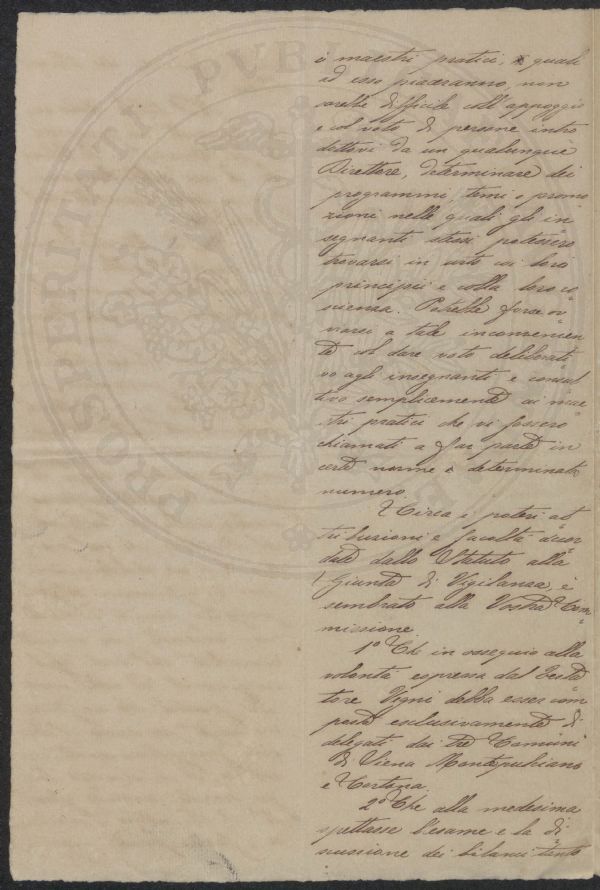 i maestri pratici, quali
ad esso piaceranno, non
sarebbe difficile coll'appoggio
e col voto di persone intro
dottovi da un qualunque
Direttore, determinare dei
programmi, temi o promo
zioni nelle quali gli in
segnanti stessi potessero
trovarsi in urto coi loro
principii e colla loro co
scienza. Potrebbe forse ov
viarsi a tale inconvenien
te col dare voto deliberati
vo agli insegnanti e consul
tivo semplicemente ai mae
stri pratici che vi fossero
chiamati a far parte in
certe norme e determinato
numero.
Circa i poteri at
tribuzioni e facoltà accor
date dallo Statuto alla
Giunta di Vigilanza, è
sembrato alla Vostra Com
missione.
1° Che in ossequio alla
volontà espressa dal Testa
tore Vegni debba esser com
posta esclusivamente di
delegati dai tre Comuni
di Siena Montepulciano
e Cortona.
2° Che alla medesima
spettasse l'esame e la di
scussione dei bilanci tanto
PROSPERITATI PVB